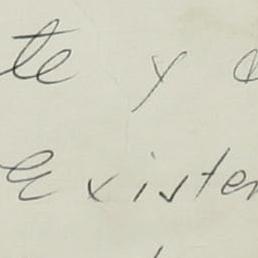 te y
existen